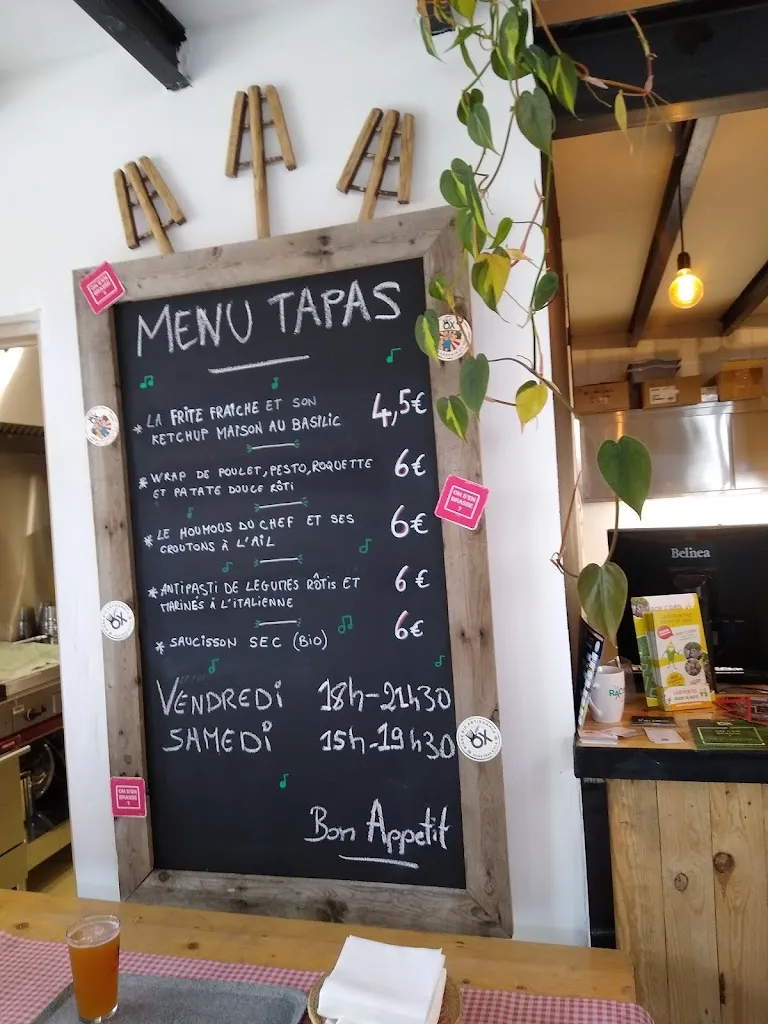 MENU TAPAS
* LA FRITE FRAÎCHE ET SON
KETCHUP MAISON AU BASILIC
4,5€
* WRAP DE POULET, PESTO, ROQUETTE
ET PATATE DOUCE RÔTI
6€
* LE HOUMOUS DU CHEF ET SES
CROUTONS À L'AÏL
6€
* ANTIPASTI DE LEGUMES RÔTIS ET
MARINÉS À L'ITALIENNE
6€
* SAUCISSON SEC (BIO)
6€
VENDREDI 18h-21h30
SAMEDI 15h-19h30
Bon Appetit
ON S'EN
BRASSE
?
ON S'EN
BRASSE
?
ON S'EN
BRASSE
?
OX
OX
OX
Belinea